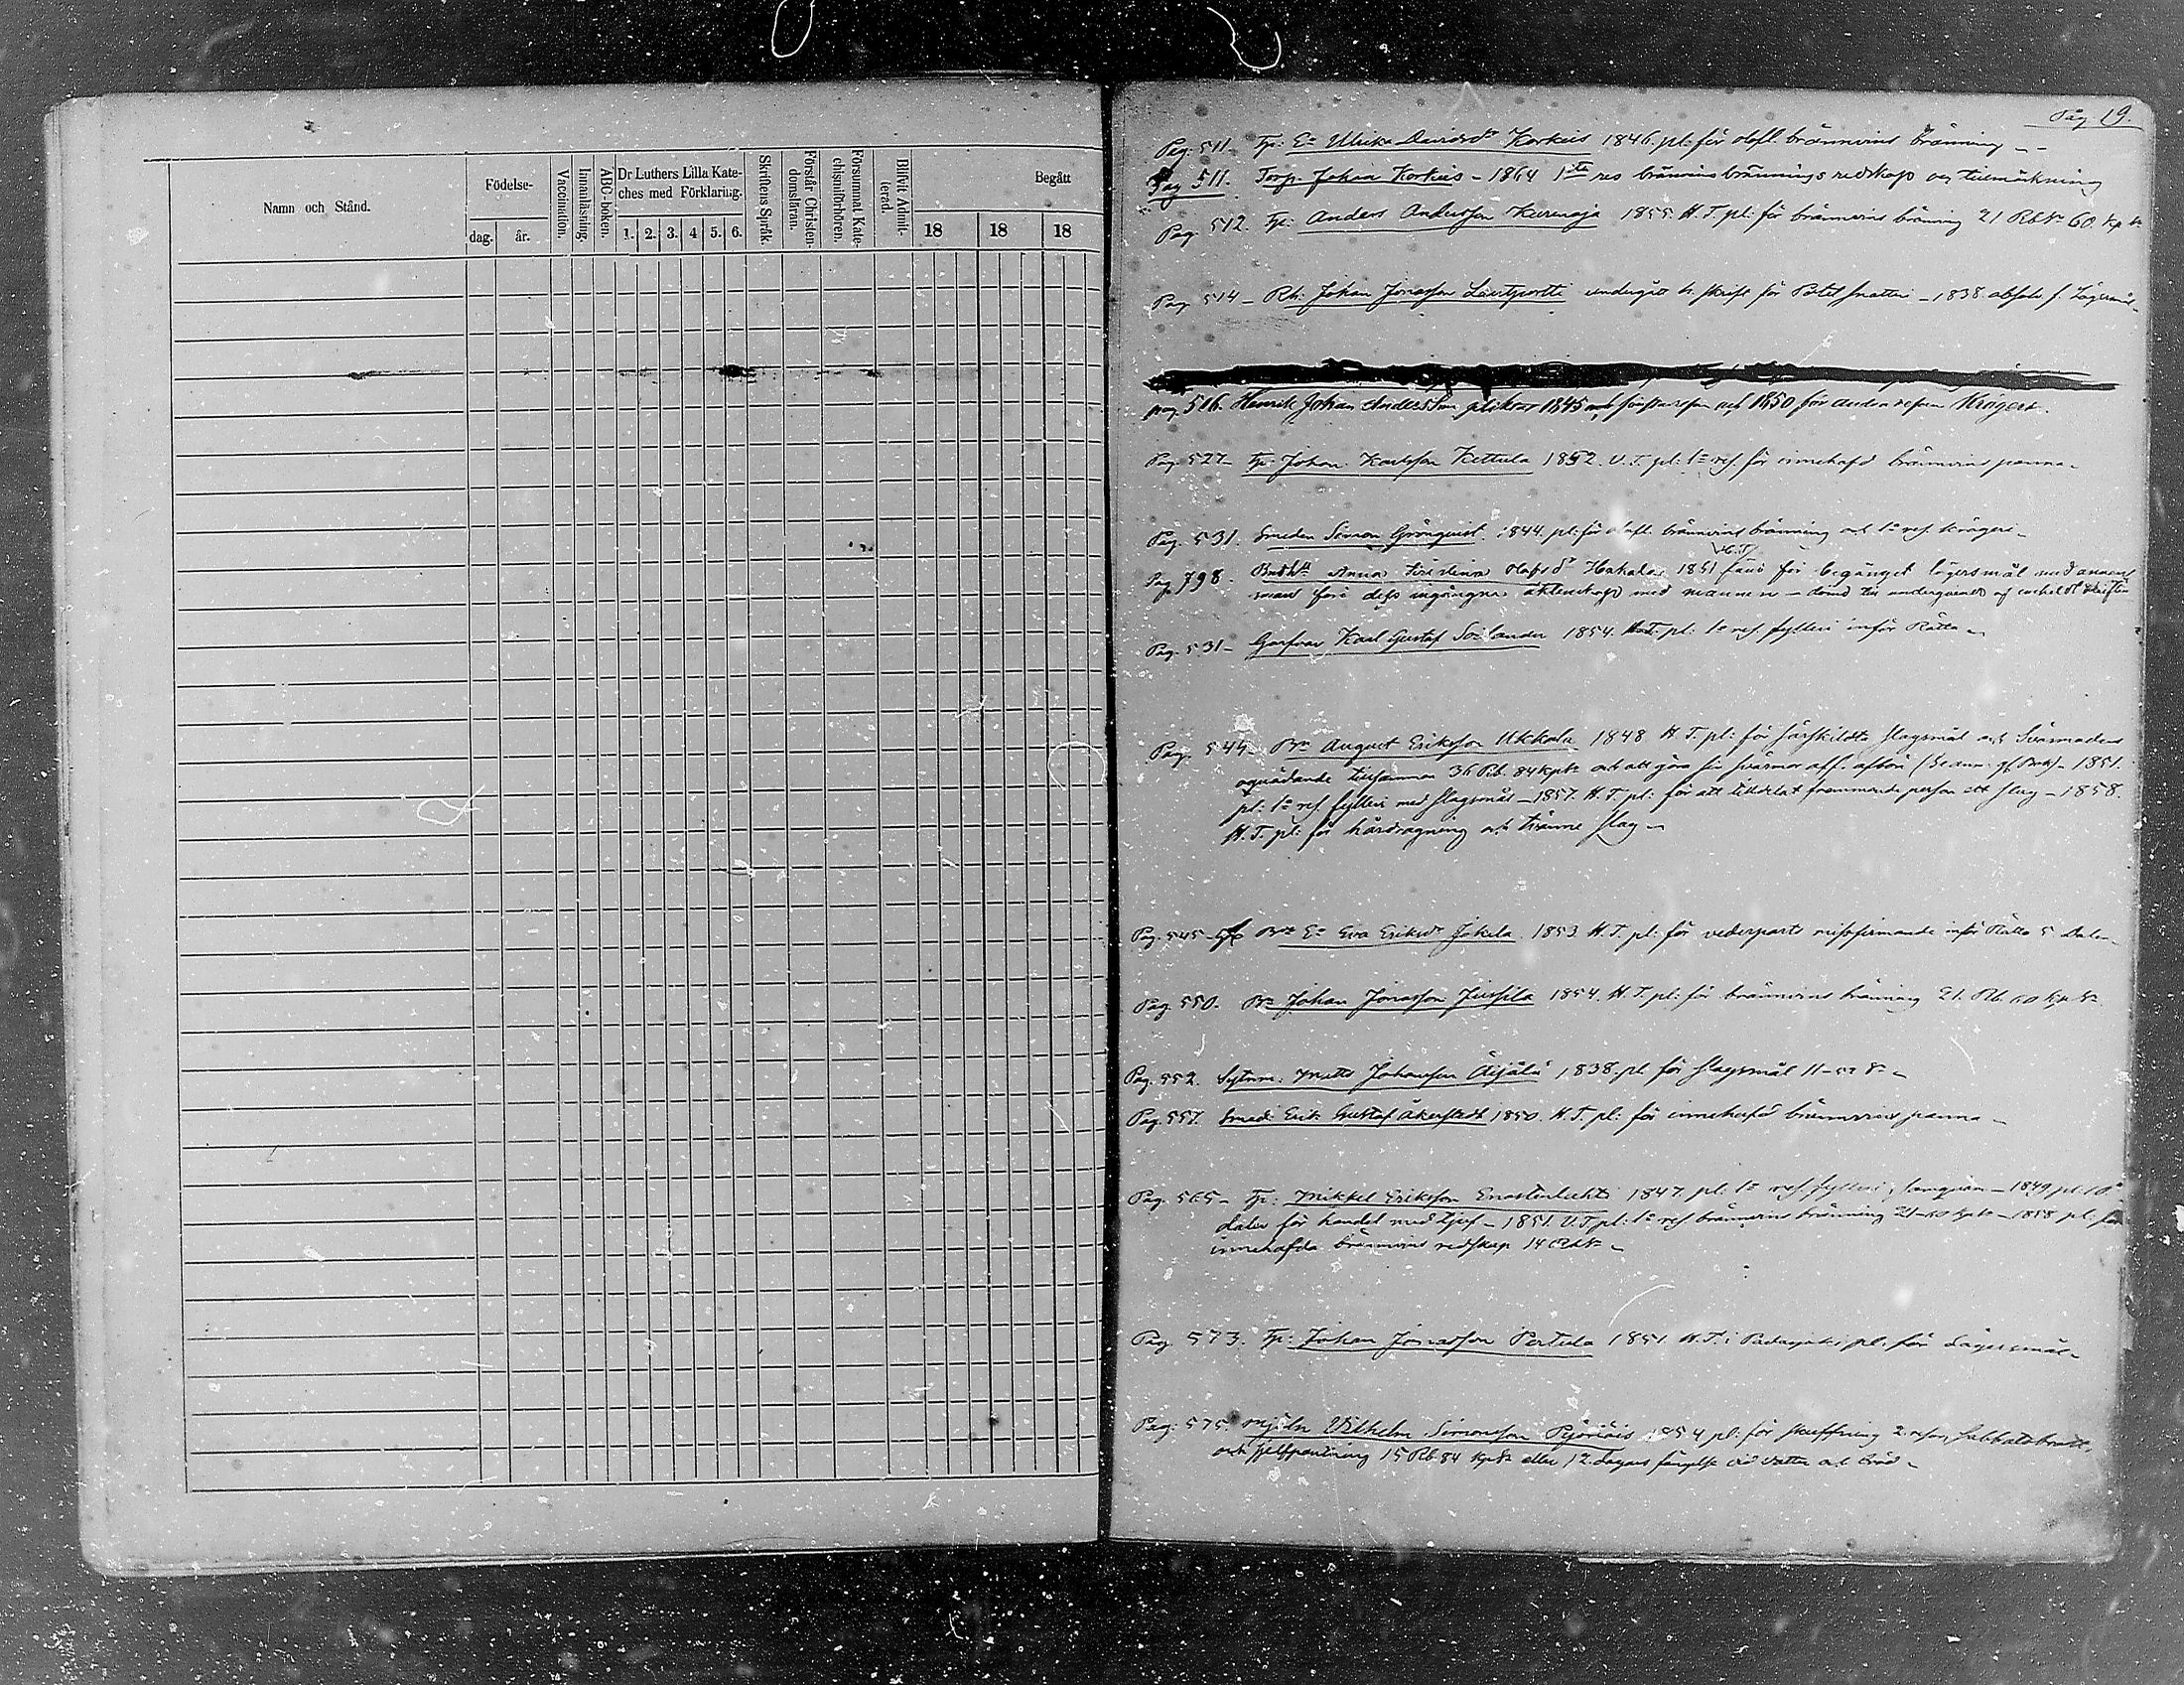 Namn och Stånd.
Födelse-
dag.
år.
Vaccination.
Innanläsning.
ABC-boken.
Dr Luthers Lilla Kate-
ches med Förklaring.
1. 2. 3. 4 5. 6.
Skriftens Språk.
Förstår Christen-
domsläran.
Försummat Kate-
chismiförhören.
Blifvit Admit-
terad.
Begått
18 18 18
Pag. 19.
Pag. 511. Tp: Ea Ulrika Davidsdr Korkeis 1846. pl: för olofl. brännvins bränning
Pag 511. Torp. Johan Korkeis - 1864 1sta res brännvinsbrännings redskap
Pag. 512. Tp: Anders Andersson Kurenoja 1855. H.T. pl: för brännvins bränning 21 Rb 60 kp
Pag. 514 - Johan Jonasson undergått skrift för - 1838 f. Lägersmål
pag. 516. Henrik Johan Andersson pliktat 1845 och 1850 för andra resan Krögeri.
Pag. 527 - Tp: Johan Karlsson Kettula 1852. V.T. pl: 1a res. för innehafd brännvins panna.
Pag. 531. Smeden Simon Grönquist. 1844. pl: för olofl. brännvins bränning och 1a res. krögeri
Pag. 798. Anna Kristina Olofsdr Hakala 1851 för begånget lägersmål med annan
man före dess ingångna äktenskap med mannen - dömd till undergående af enskildt skriften
Pag. 531 - Garfvar Karl Gustaf Soilander 1854. H.T. pl: 1a res. fylleri inför Rätta
Pag. 544 - August Eriksson Ukkola 1848 H.T. pl: för särskildte slagsmål och Svärmodrens
oqvädande tillsammans 36 Rb. 84 kp och att göra sin svärmor aff. afbön - 1851.
pl: 1a res fylleri med slagsmål - 1857. H.T. pl: för att tilldelat frammande person ett slag - 1858.
H.T. pl: för hårdragning och tvänne slag
Pag. 545 Ea Eva Eriksdr Jokela 1853 H.T. pl: för vederparts missfirmande inför Rätta 5 Daler
Pag. 550. Johan Jonasson Jussila 1854. H.T. pl: för brännvins bränning 21. Rb. 60 kp
Pag. 552. Sytnm: Matts Johansson Äijälä 1838. pl för slagsmål
Pag. 557. Smed: Erik Gustaf Åkerstedt 1850. H.T. pl: för innehafd brännvins panna
Pag. 565 - Tp: Mikkel Eriksson 1847. pl: 1a res. fylleri, - 1849 pl:
daler för handel med tjuf - 1851. V.T pl: 1a res brännvins bränning - 1858 pl: för
innehafda brännvins redskap 14
Pag 573. Tp: Johan Jonasson Pertula 1851. H.T. i Padasjoki pl: för Lägersmål
Pag. 575. Mjöln Vilhelm Simonsson 1854 pl: för skuffning 2. resan, sabbatsbrott
och sjelfpantning 15 Rb 84 kp eller 12. dagars fängelse vid vatten och bröd